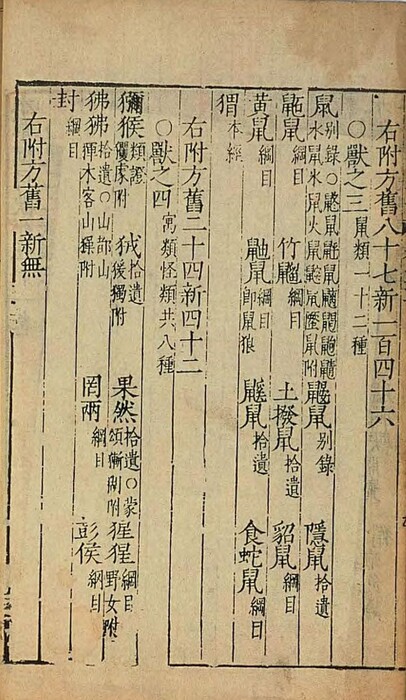 右附方舊八十七新一百四十六
○獸之三 鼠類一十二種
鼠 別錄○ 水鼠氷鼠火鼠 鼠附 鼴鼠 別錄 隱鼠 拾遺
鼫鼠 綱目 竹䶉 綱目 土撥鼠 拾遺 貂鼠 綱目
黃鼠 綱目 鼬鼠 綱目 即鼠狼 鼷鼠 拾遺 食蛇鼠 綱目
猬 本經
右附方舊二十四新四十二
○獸之四 寓類怪類共八種
獼猴 類證 玃豦附 狨 拾遺 猨獨附 果然 拾遺○蒙頌獑猢附 猩猩 綱目 野女附
狒狒 拾遺○山都山 木客山 附 罔兩 綱目 彭侯 綱目
封 綱目
右附方舊一新無